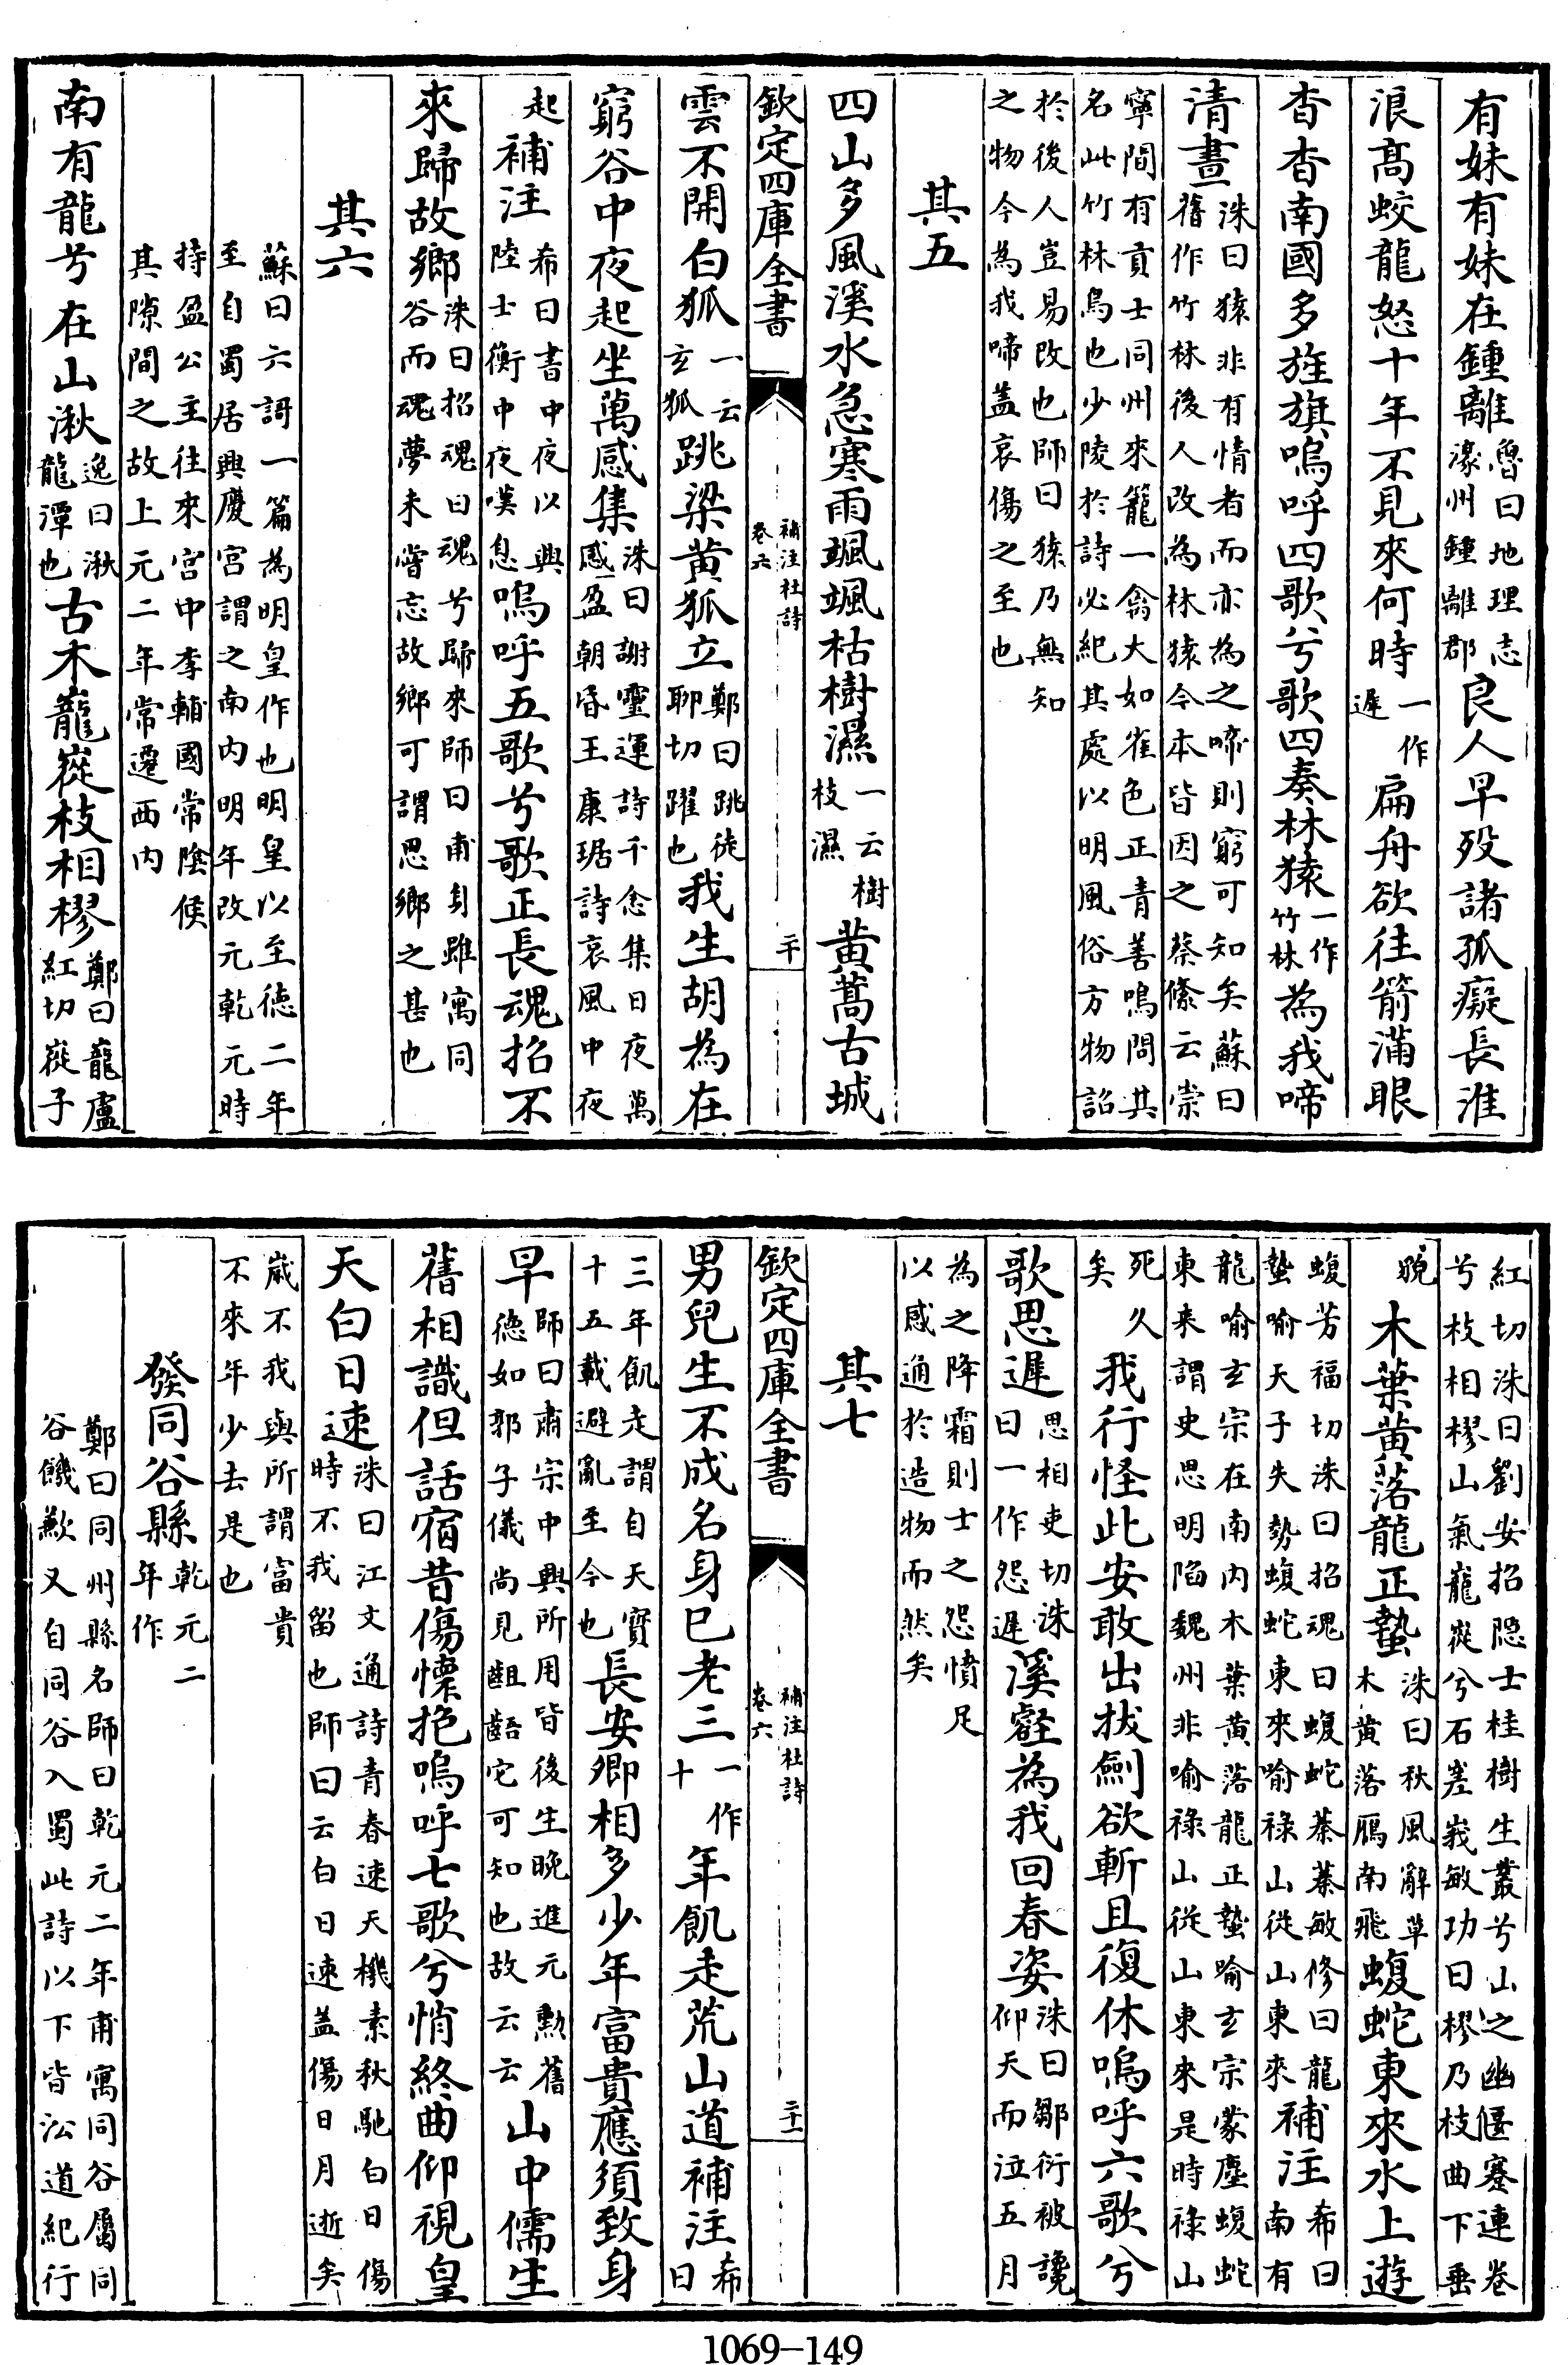 有妹有妹在鍾離魯曰地理志濠州鍾離郡良人早殁諸孤癡長淮
浪髙蛟龍怒十年不見來何時一作遲扁舟欲往箭滿眼
杳杳南國多旌旗嗚呼四歌兮歌四奏林猿一作竹林為我啼
清晝洙曰猿非有情者而亦為之啼則窮可知矣蘇曰舊作竹林後人改為林猿今本皆因之蔡絛云崇
寧間有貢士同州來籠一禽大如雀色正青善鳴問其名此竹林鳥也少陵於詩必紀其處以明風俗方物詔
於後人豈易改也師曰猿乃無知之物今為我啼蓋哀傷之至也
其五
四山多風溪水急寒雨颯颯枯樹濕一云樹枝濕黄蒿古城
欽定四庫全書 補注杜詩卷六 二十
雲不開白狐一云玄狐跳梁黄狐立鄭曰跳徒聊切躍也我生胡為在
窮谷中夜起坐萬感集洙曰謝靈運詩千念集日夜萬感盈朝昏王康琚詩哀風中夜
起補注希曰書中夜以興陸士衡中夜嘆息嗚呼五歌兮歌正長魂招不
來歸故鄉洙曰招魂曰魂兮歸來師曰甫身雖寓同谷而魂夢未嘗忘故鄉可謂思鄉之甚也
其六
蘇曰六謌一篇為明皇作也明皇以至徳二年至自蜀居興慶宫謂之南内明年改元乾元時
持盈公主往來宫中李輔國常陰候其隙間之故上元二年常遷西内
南有龍兮在山湫逸曰湫龍潭也古木巃嵸枝相樛鄭曰巃盧紅切嵸子
紅切洙曰劉安招隠士桂樹生叢兮山之幽偃蹇連卷兮枝相樛山氣巃嵸兮石嵳峩敏功曰樛乃枝曲下垂
貌木葉黄落龍正蟄洙曰秋風辭草木黄落鴈南飛蝮蛇東來水上遊
蝮芳福切洙曰招魂曰蝮蛇蓁蓁敏修曰龍蟄喻天子失勢蝮蛇東來喻禄山從山東來補注希曰南有
龍喻玄宗在南内木葉黄落龍正蟄喻玄宗蒙塵蝮蛇東来謂史思明陷魏州非喻禄山從山東來是時禄山
死久矣我行怪此安敢出拔劍欲斬且復休嗚呼六歌兮
歌思遲思相吏切洙曰一作怨遲溪壑為我回春姿洙曰鄒衍被讒仰天而泣五月
為之降霜則士之怨憤足以感通於造物而然矣
其七
欽定四庫全書 補注杜詩卷六 二十一
男兒生不成名身已老三一作十年飢走荒山道補注希曰
三年飢走謂自天寳十五載避亂至今也長安卿相多少年富貴應須致身
早師曰肅宗中興所用皆後生晚進元勲舊徳如郭子儀尚見齟齬它可知也故云云山中儒生
舊相識但話宿昔傷懐抱嗚呼七歌兮悄終曲仰視皇
天白日速洙曰江文通詩青春速天機素秋馳白日傷時不我留也師曰云白日速蓋傷日月逝矣
歳不我與所謂富貴不來年少去是也
發同谷縣乾元二年作
鄭曰同州縣名師曰乾元二年甫寓同谷屬同谷饑歉又自同谷入蜀此詩以下皆沿道紀行
1069-149